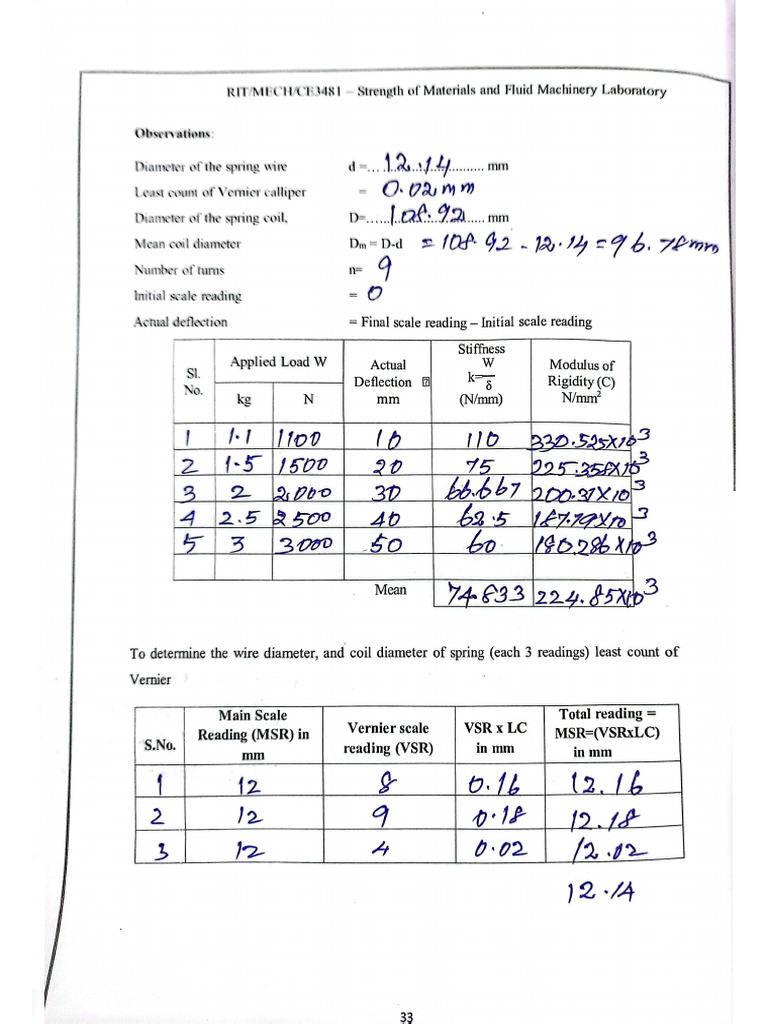 RIT/MECH/CE3481 – Strength of Materials and Fluid Machinery Laboratory
Observations:
Diameter of the spring wire d =... 12.14 ... mm
Least count of Vernier calliper = 0.02 mm
Diameter of the spring coil, D=...... 108.92 ...... mm
Mean coil diameter Dm = D-d = 108.92 - 12.14 = 96.78mm
Number of turns n= 9
Initial scale reading = 0
Actual deflection = Final scale reading – Initial scale reading
Sl. No. Applied Load W kg N Actual Deflection mm Stiffness k= W/δ (N/mm) Modulus of Rigidity (C) N/mm²
1 1.1 1100 10 110 330.525×10³
2 1.5 1500 20 75 225.358×10³
3 2 2000 30 66.667 200.31×10³
4 2.5 2500 40 62.5 187.79×10³
5 3 3000 50 60 180.286×10³
Mean 74.833 224.85×10³
To determine the wire diameter, and coil diameter of spring (each 3 readings) least count of
Vernier
S.No. Main Scale Reading (MSR) in mm Vernier scale reading (VSR) VSR x LC in mm Total reading = MSR=(VSRxLC) in mm
1 12 8 0.16 12.16
2 12 9 0.18 12.18
3 12 4 0.02 12.02
12.14
33